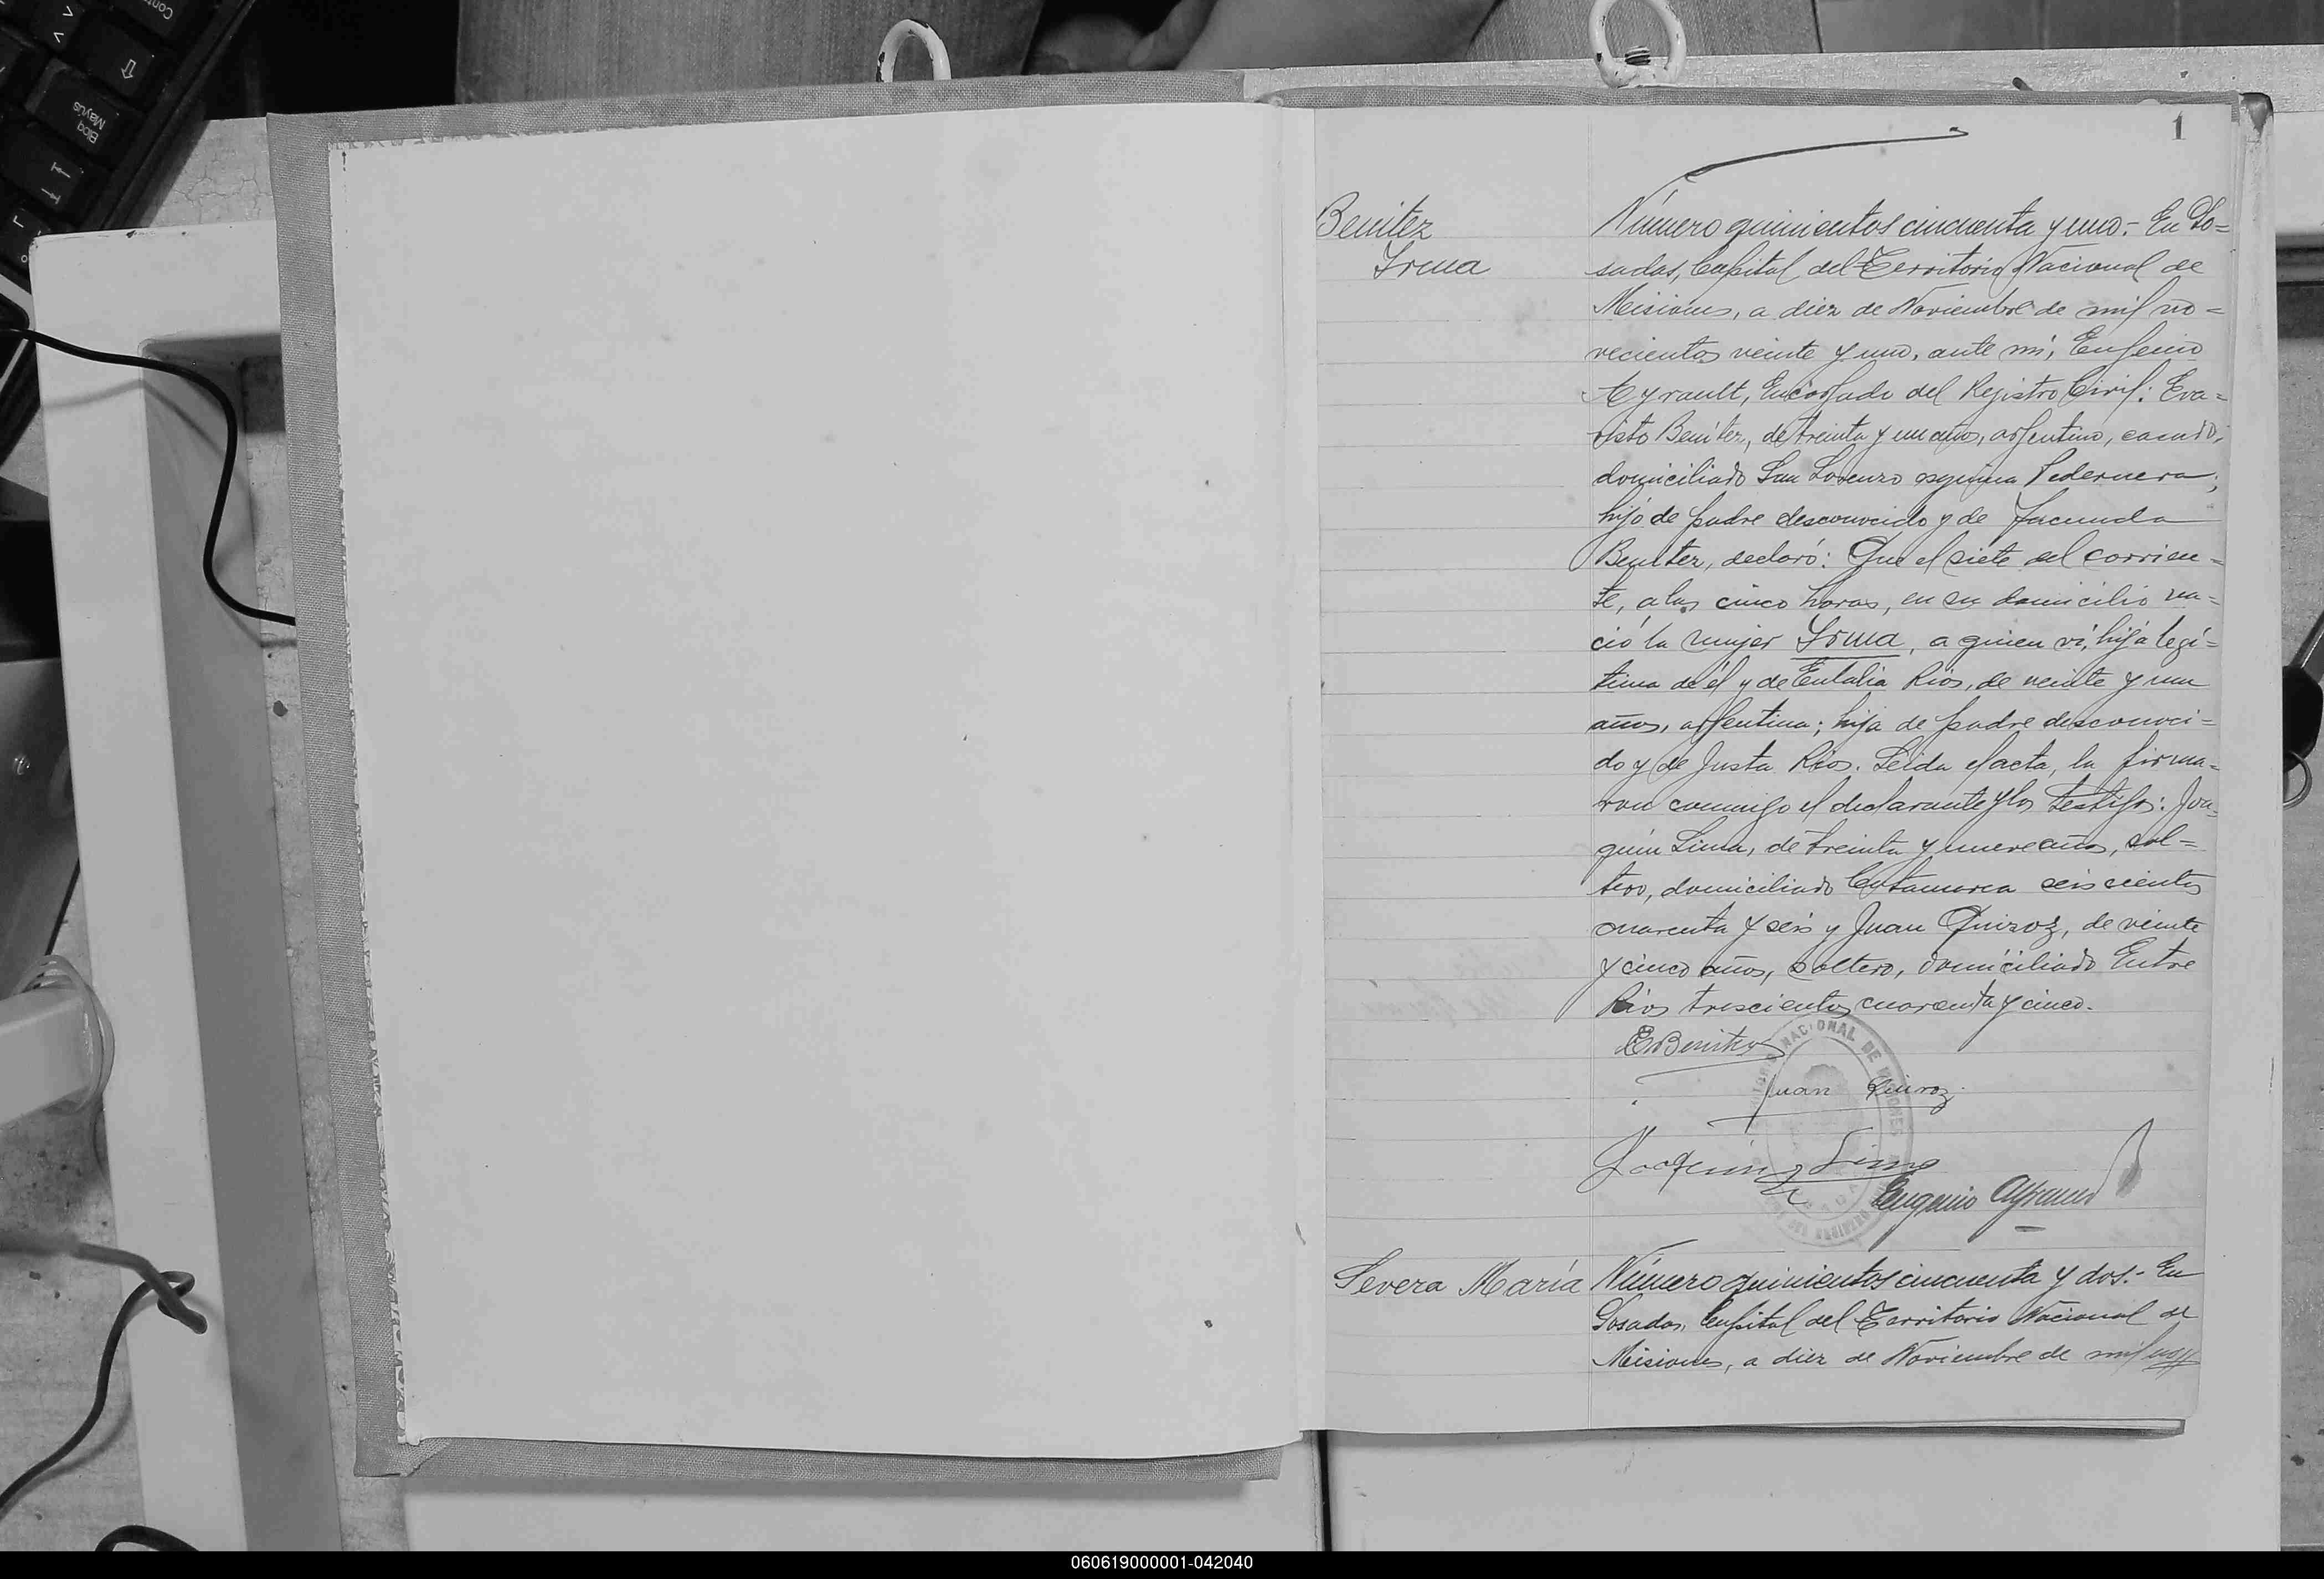 1
Benitez
Irma
Número quinientos cincuenta y uno.- En Po=
sadas, Capital del Territorio Nacional de
Misiones, a diez de Noviembre de mil no=
vecientos veinte y uno, ante mí, Eugenio
Ayrault, Encargado del Registro Civil: Eva=
risto Benítez, de treinta y un años, argentino, casado,
domiciliado San Lorenzo esquina Pedernera;
hijo de padre desconocido y de Facunda
Benítez, declaró: Que el siete del corrien=
te, a las cinco horas, en su domicilio na=
ció la mujer Irma, a quien ví, hija legí=
tima de él y de Eulalia Rios, de veinte y un
años, argentina; hija de padre desconoci=
do y de Justa Rios. Leida el acta, la firma=
ron conmigo el declarante y los testigos: Joa=
quín Lima, de treinta y nueve años, sol=
tero, domiciliado Catamarca seiscientos
cuarenta y seis y Juan Quiroz, de veinte
y cinco años, soltero, domiciliado Entre
Rios trescientos cuarenta y cinco.
E Benitez
Juan Quiroz
Joaquin Lima
Eugenio Ayrault
NACIONAL DE MISIONES
Severa María
Número quinientos cincuenta y dos.- En
Posadas, Capital del Territorio Nacional de
Misiones, a diez de Noviembre de mil no
Bloq
Mayús
060619000001-042040